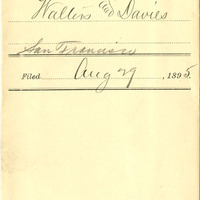 Walters and Davies
San Francisco
Filed Aug 29, 1895.